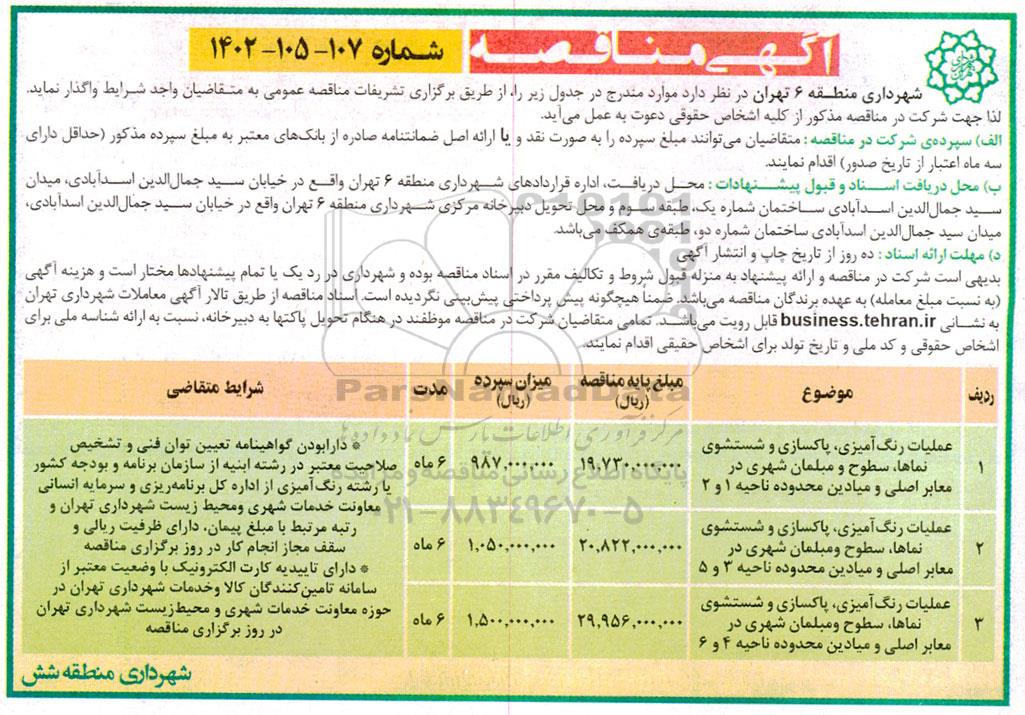 آگهی مناقصه
شماره ۱۰۷- ۱۰۵- ۱۴۰۲
شهرداری منطقه ۶ تهران در نظر دارد موارد مندرج در جدول زیر را، از طریق برگزاری تشریفات مناقصه عمومی به متقاضیان واجد شرایط واگذار نماید.
لذا جهت شرکت در مناقصه مذکور از کلیه اشخاص حقوقی دعوت به عمل می‌آید.
الف) سپرده‌ی شرکت در مناقصه : متقاضیان می‌توانند مبلغ سپرده را به صورت نقد و یا ارائه اصل ضمانتنامه صادره از بانک‌های معتبر به مبلغ سپرده مذکور (حداقل دارای
سه ماه اعتبار از تاریخ صدور) اقدام نمایند.
ب) محل دریافت اسناد و قبول پیشنهادات : محل دریافت، اداره قراردادهای شهرداری منطقه ۶ تهران واقع در خیابان سید جمال‌الدین اسدآبادی، میدان
سید جمال‌الدین اسدآبادی ساختمان شماره یک، طبقه سوم و محل تحویل دبیرخانه مرکزی شهرداری منطقه ۶ تهران واقع در خیابان سید جمال‌الدین اسدآبادی،
میدان سید جمال‌الدین اسدآبادی ساختمان شماره دو، طبقه‌ی همکف می‌باشد.
د) مهلت ارائه اسناد : ده روز از تاریخ چاپ و انتشار آگهی
بدیهی است شرکت در مناقصه و ارائه پیشنهاد به منزله قبول شروط و تکالیف مقرر در اسناد مناقصه بوده و شهرداری در رد یک یا تمام پیشنهادها مختار است و هزینه آگهی
(به نسبت مبلغ معامله) به عهده برندگان مناقصه می‌باشد. ضمناً هیچگونه پیش پرداختی پیش‌بینی نگردیده است. اسناد مناقصه از طریق تالار آگهی معاملات شهرداری تهران
به نشانی business.tehran.ir قابل رویت می‌باشد. تمامی متقاضیان شرکت در مناقصه موظفند در هنگام تحویل پاکتها به دبیرخانه، نسبت به ارائه شناسه ملی برای
اشخاص حقوقی و کد ملی و تاریخ تولد برای اشخاص حقیقی اقدام نمایند.
ردیف
موضوع
مبلغ پایه مناقصه
(ریال)
میزان سپرده
(ریال)
مدت
شرایط متقاضی
۱
عملیات رنگ‌آمیزی، پاکسازی و شستشوی
نماها، سطوح و مبلمان شهری در
معابر اصلی و میادین محدوده ناحیه ۱ و ۲
۱۹،۷۳۰،۰۰۰،۰۰۰
۹۸۷،۰۰۰،۰۰۰
۶ ماه
۲
عملیات رنگ‌آمیزی، پاکسازی و شستشوی
نماها، سطوح ومبلمان شهری در
معابر اصلی و میادین محدوده ناحیه ۳ و ۵
۲۰،۸۲۲،۰۰۰،۰۰۰
۱،۰۵۰،۰۰۰،۰۰۰
۶ ماه
۳
عملیات رنگ‌آمیزی، پاکسازی و شستشوی
نماها، سطوح ومبلمان شهری در
معابر اصلی و میادین محدوده ناحیه ۴ و ۶
۲۹،۹۵۶،۰۰۰،۰۰۰
۱،۵۰۰،۰۰۰،۰۰۰
۶ ماه
* دارابودن گواهینامه تعیین توان فنی و تشخیص
صلاحیت معتبر در رشته ابنیه از سازمان برنامه و بودجه کشور
یا رشته رنگ‌آمیزی از اداره کل برنامه‌ریزی و سرمایه انسانی
معاونت خدمات شهری ومحیط زیست شهرداری تهران و
رتبه مرتبط با مبلغ پیمان، دارای ظرفیت ریالی و
سقف مجاز انجام کار در روز برگزاری مناقصه
* دارای تاییدیه کارت الکترونیک با وضعیت معتبر از
سامانه تامین‌کنندگان کالا وخدمات شهرداری تهران در
حوزه معاونت خدمات شهری و محیط‌زیست شهرداری تهران
در روز برگزاری مناقصه
شهرداری منطقه شش
ParsNamadData
مرکز فرآوری اطلاعات پارس نماد داده‌ها
پایگاه اطلاع رسانی مناقصه و مزایده
۰۲۱-۸۸۳۴۹۶۷۰-۵